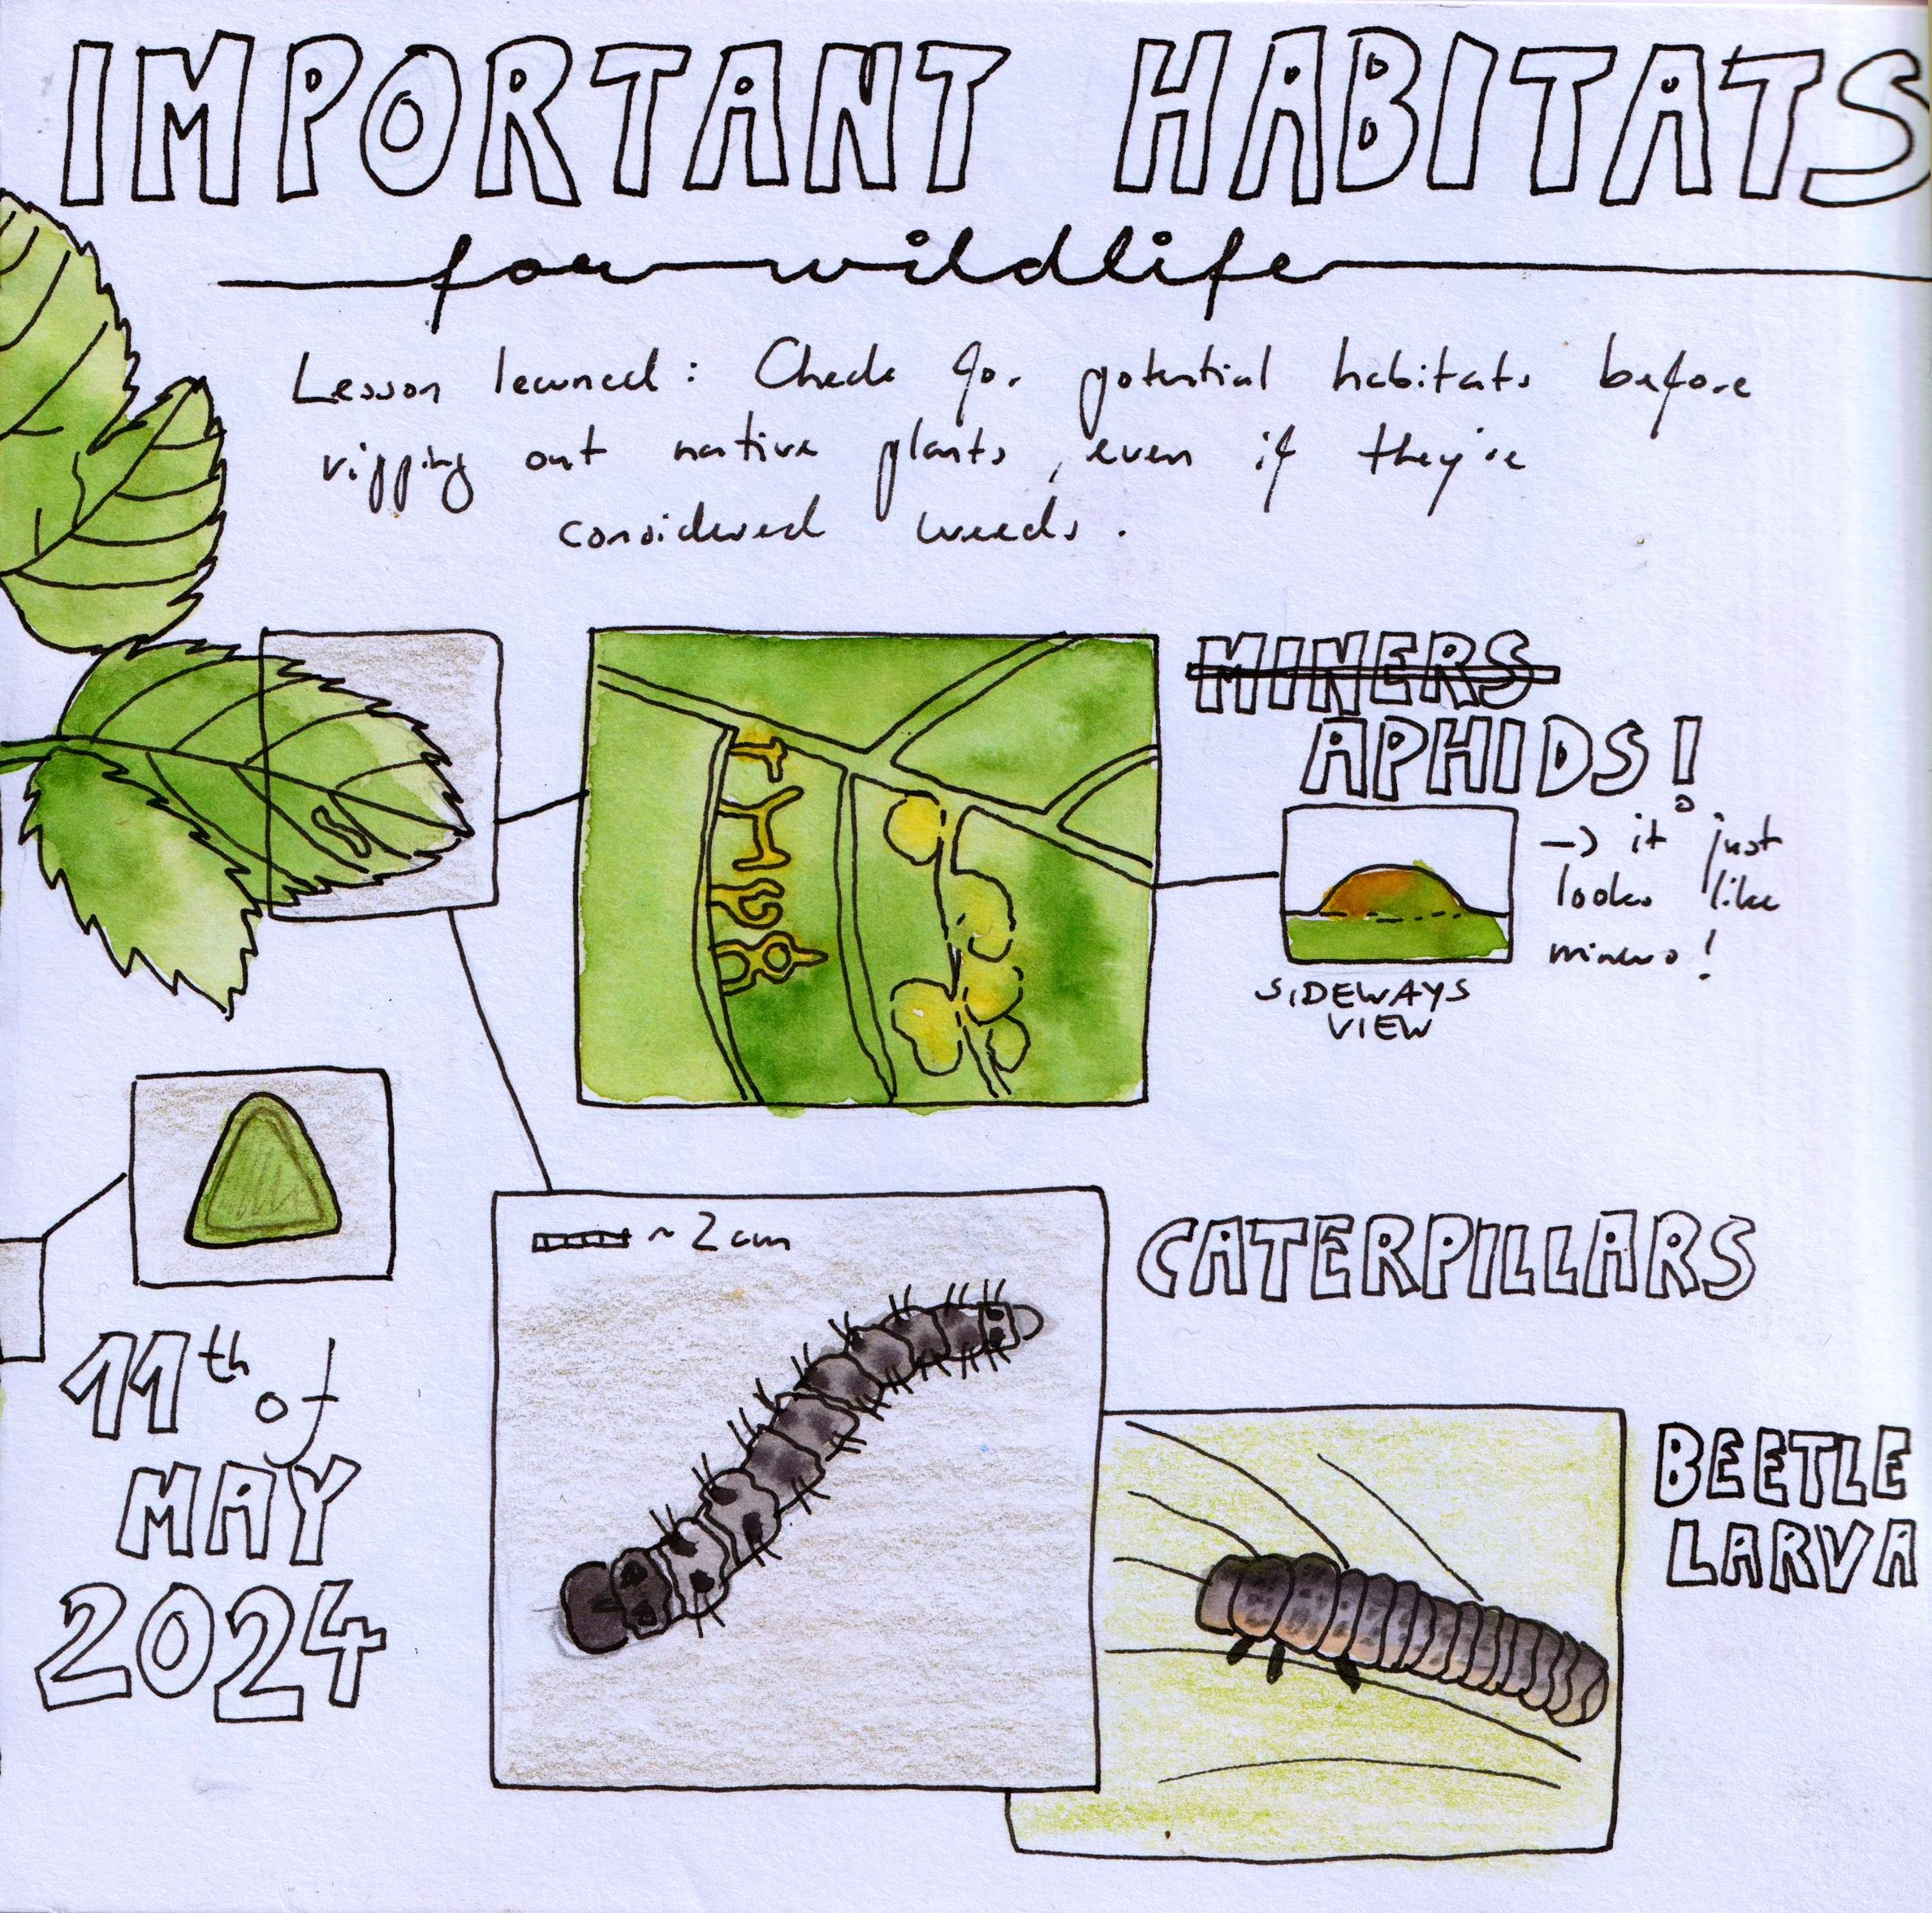 IMPORTANT HABITATS
for wildlife
Lesson learned: Check for potential habitats before
ripping out native plants, even if they're
considered weeds.
MINERS
APHIDS!
→ it just
looks like
miners!
SIDEWAYS
VIEW
~ 2 cm
CATERPILLARS
11th of
MAY
2024
BEETLE
LARVA